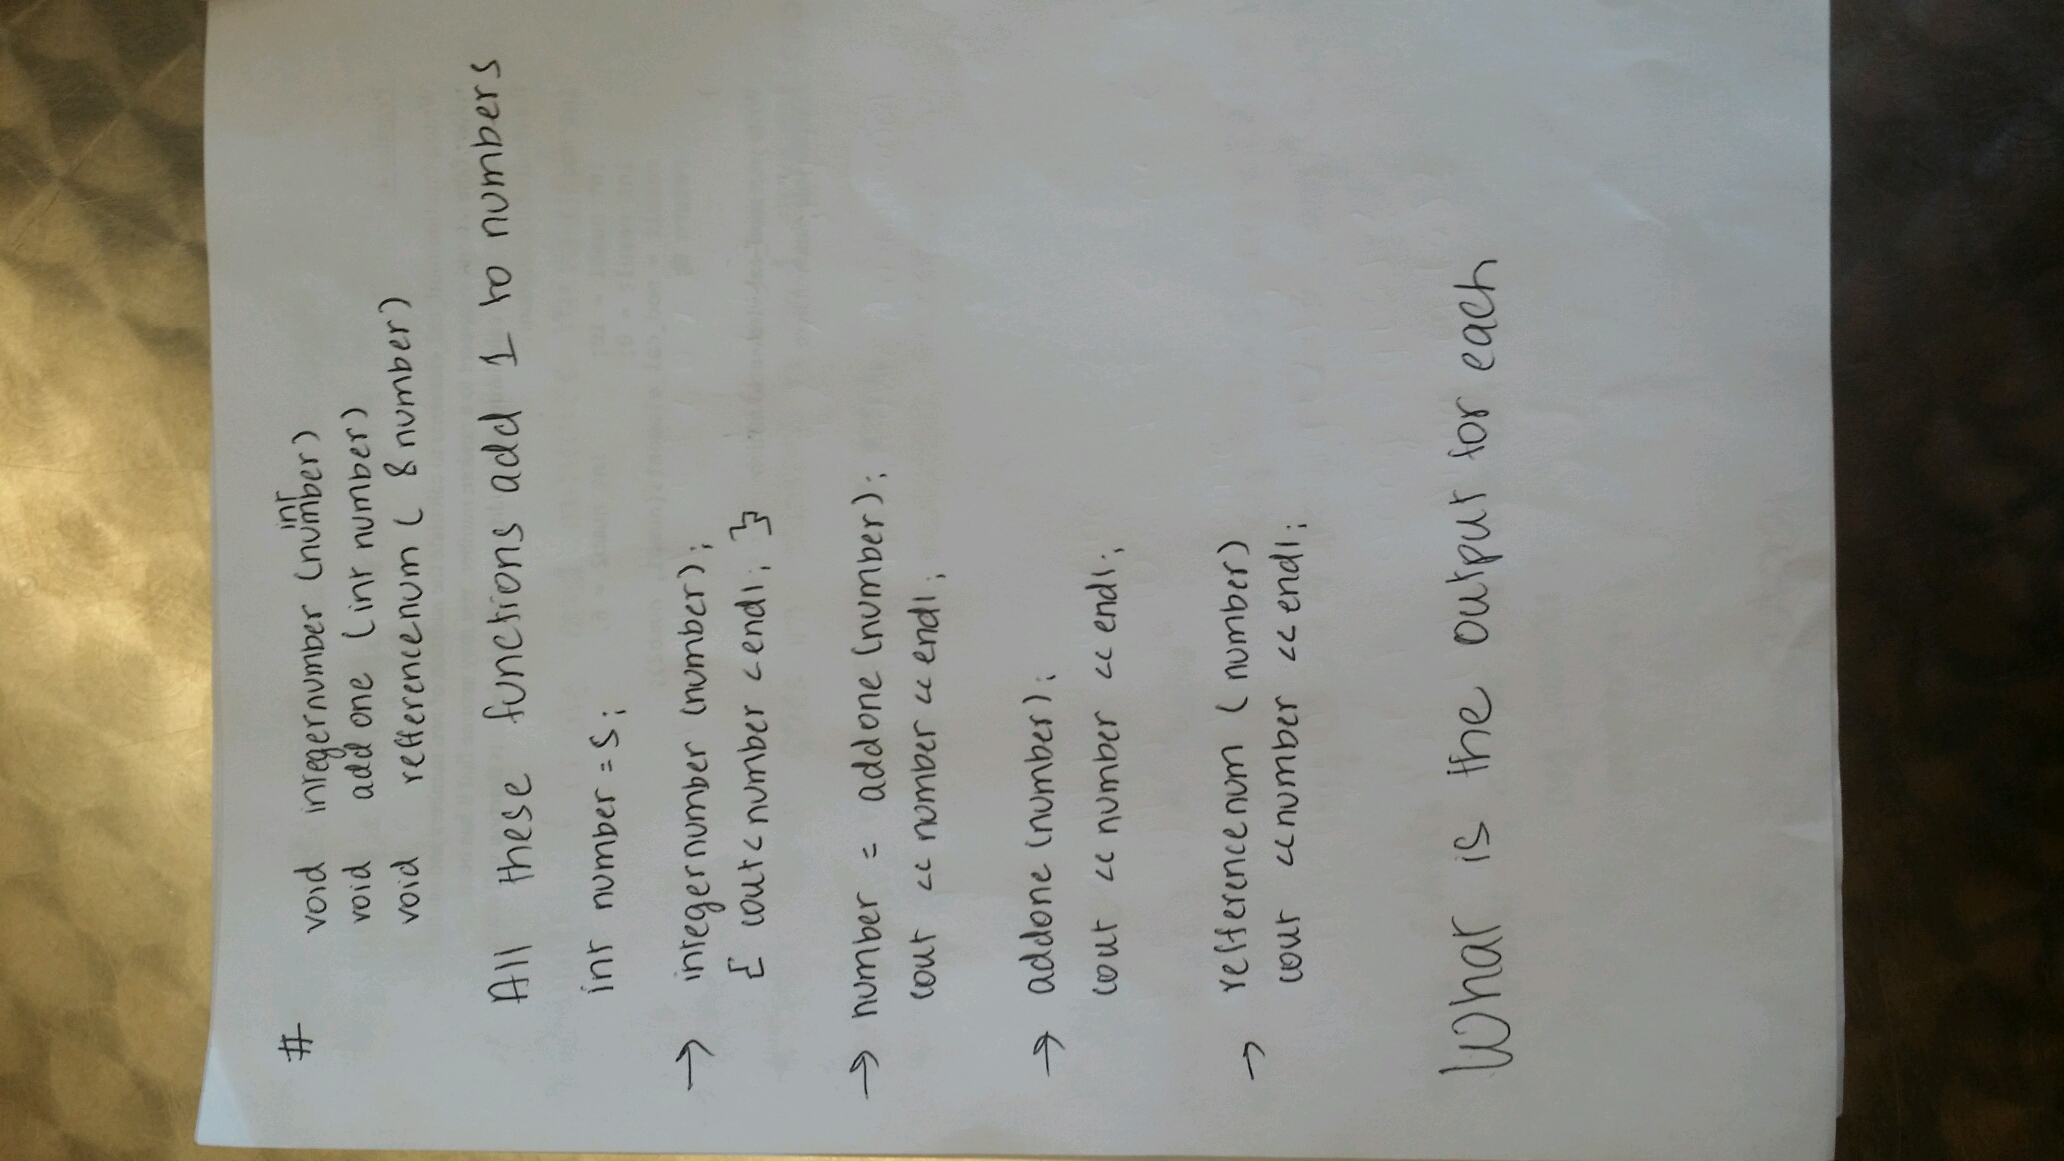 # void integernumber (int number)
void addone (int number)
void refferencenum ( &number)
All these functions add 1 to numbers
int number = 5;
→ integernumber (number);
{ cout < number < endl; }
→ number = addone (number);
cout << number << endl;
→ addone (number);
cout << number << endl;
→ refferencenum ( number)
cout << number << endl;
What is the output for each